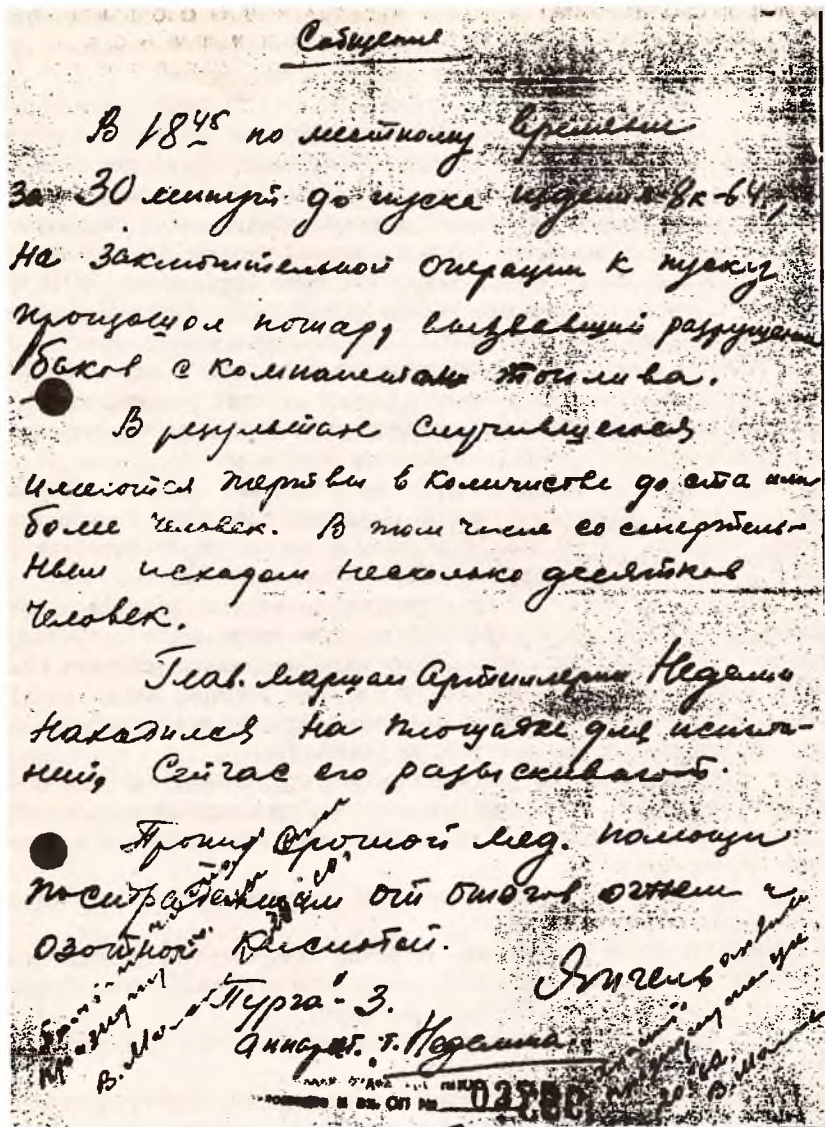 Сообщение
В 18 45 по местному времени
за 30 минут до пуска изделия 8к-64,
на заключительной операции к пуску
произошол пожар, вызвавший разрушение
баков с компанентами топлива.
В результате случившегося
имеются жертвы в количестве до ста или
более человек. В том числе со смертель-
ным исходом несколько десятков
человек.
Глав. маршал Артиллерии Неделин
находился на площадке для испыта-
ний, Сейчас его разыскивают.
Прошу срочной мед. помощи
пострадавшим от ожогов огнем и
азотной кислотой.
Янгель
"Пурга"-3.
Аппарат. т. Неделина